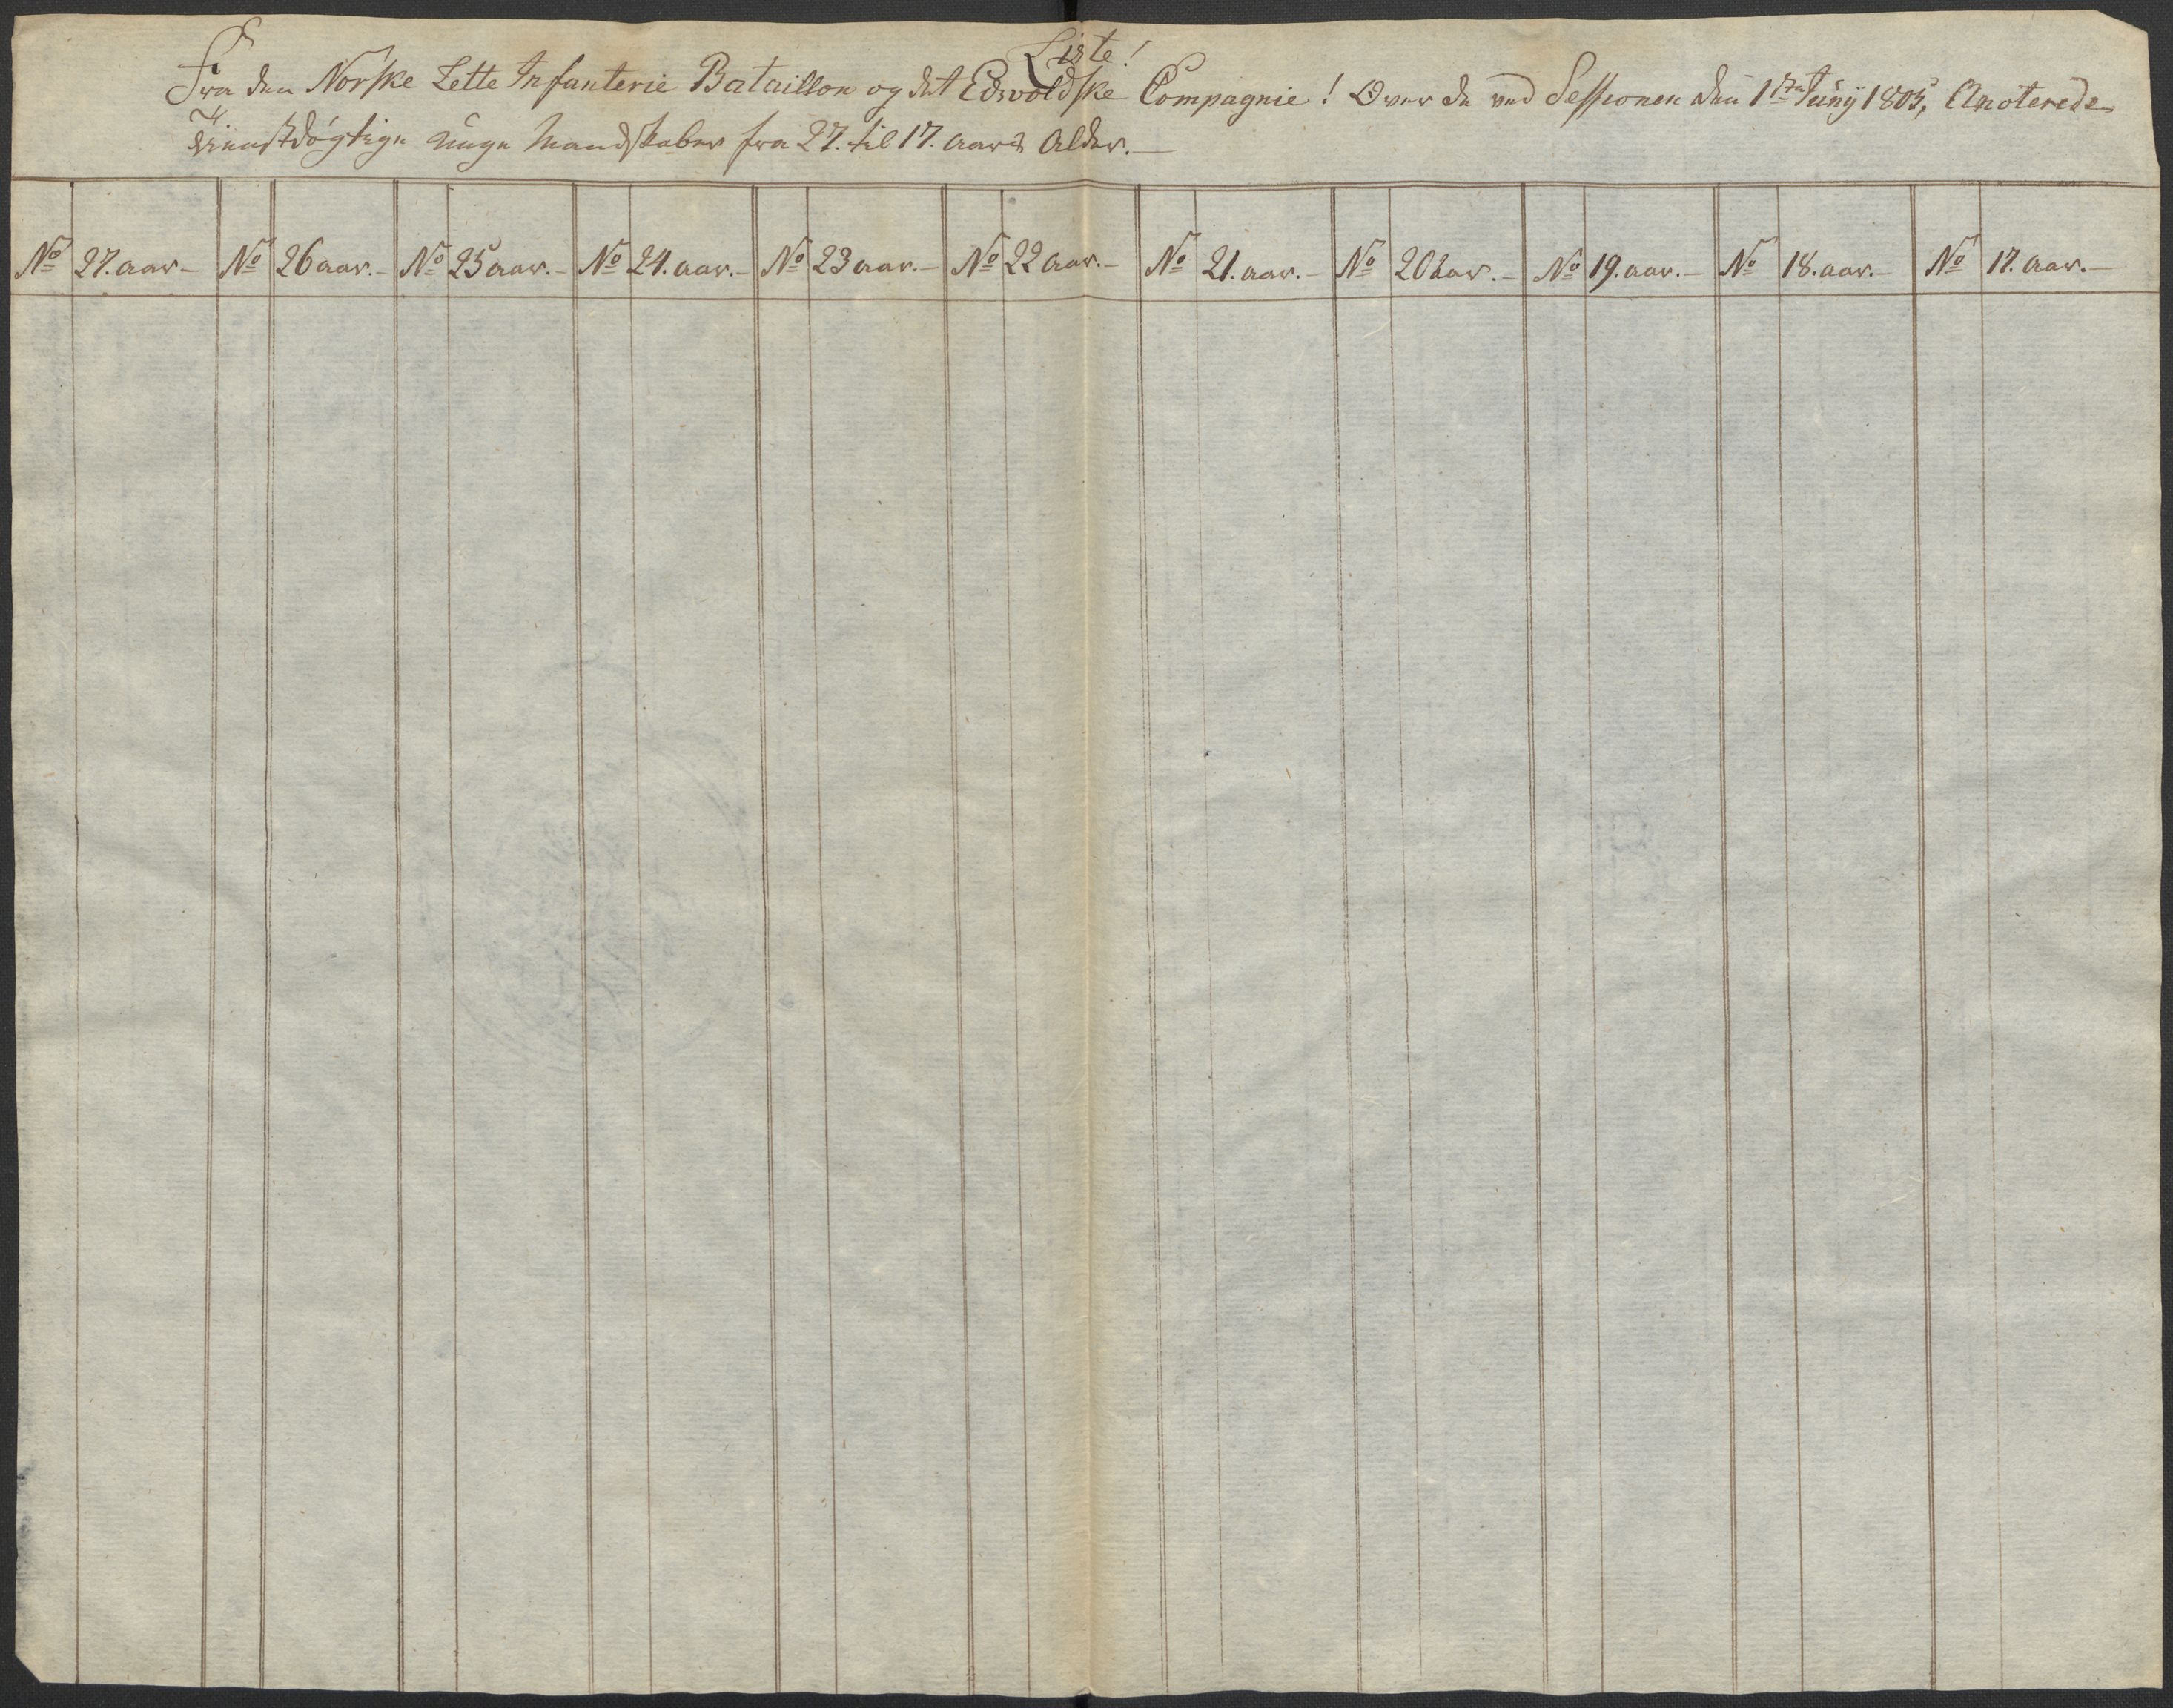 Liste!
Fra den Norske Lette Infanterie Bataillon og det Edsvoldske Compagnie! Over de ved Sessionen den 1ste Junij 1805, Anoterede
tienestdögtige unge Mandskaber fra 27. til 17. aars Alder.
No 27. aar No 26 aar. No 25 aar. No 24. aar. No 23 aar. No 22 aar. No 21. aar. No 20 aar. No 19. aar. No 18. aar. No 17. aar.